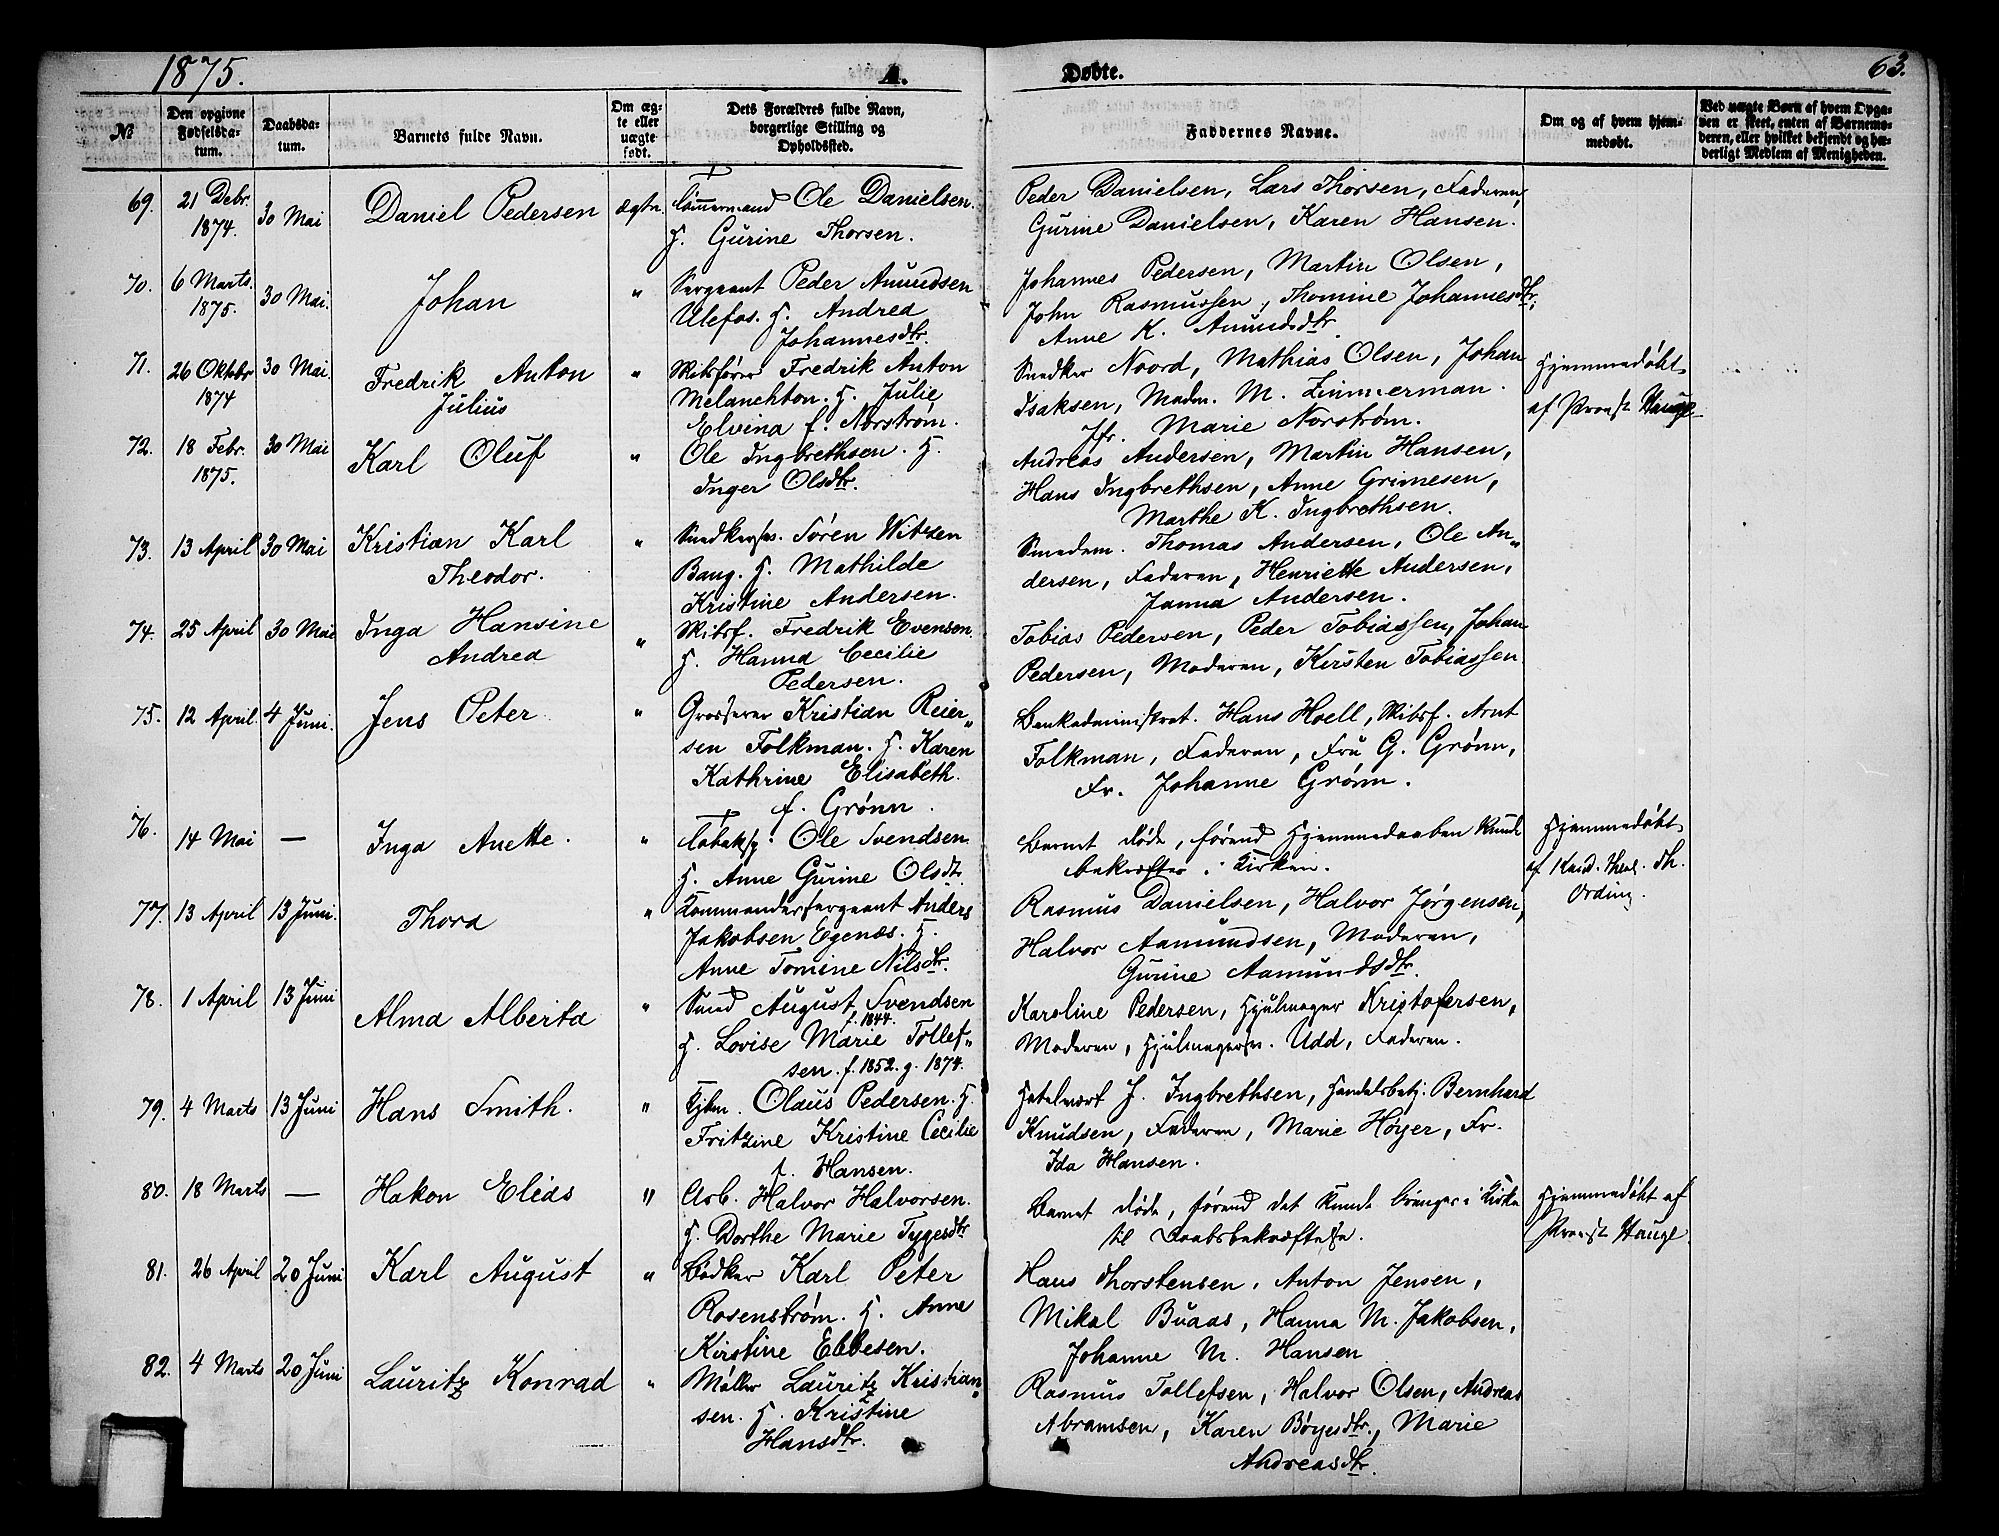 1875.
A.
Døbte.
63.
№
Den opgivne Fødselsdatum.
Daabsdatum.
Barnets fulde Navn.
Om ægte eller uægte født.
Dets Forældres fulde Navn, borgerlige Stilling og Opholdssted.
Faddernes Navne.
Om og af hvem hjemmedøbt.
Ved uægte Børn af hvem Opgaven er skeet, enten af Barnemoderen, eller hvilket bekjendt og hæderligt Medlem af Menigheden.
69. 21 Debr. 1874. 30 Mai Daniel Pedersen ægte. Tømmermand Ole Danielsen.
H. Gurine Thorsen.
Peder Danielsen, Lars Thorsen, Faderen,
Gurine Danielsen, Karen Hansen.
70. 6 Marts. 1875. 30 Mai. Johan " Sergeant Peder Amundsen
Ulefos. H. Andrea
Johannesdtr.
Johannes Pedersen, Martin Olsen,
John Rasmussen, Thomine Johannesdtr,
Anne K. Amundsdtr.
71. 26 Oktobr 1874 30 Mai. Fredrik Anton
Julius
" Skibsfører Fredrik Anton
Melanchton. H. Julie
Elvina f. Norstrøm.
Snedker Noord, Mathias Olsen, Johan
Isaksen, Madm. M. Zimmerman.
Jfr. Marie Norstrøm.
Hjemmedøbt
af Provst Hauge
72. 18 Febr. 1875. 30 Mai Karl Oluf " Ole Ingbrethsen. H.
Inger Olsdtr.
Andreas Andersen, Martin Hansen,
Hans Ingbrethsen, Anne Grimesen,
Marthe K. Ingbrethsen.
73. 13 April 30 Mai Kristian Karl
Theodor.
" Snedkers. Søren Witsen
Baug. H. Mathilde
Kristine Andersen.
Smedem. Thomas Andersen, Ole An„
dersen, Faderen, Henriette Andersen,
Janna Andersen.
74. 25 April 30 Mai Inga Hansine
Andrea
" Skibsf. Fredrik Evensen.
H. Hanna Cecilie
Pedersen.
Tobias Pedersen, Peder Tobiassen, Johan
Pedersen, Moderen, Kirsten Tobiassen
75. 12 April. 4 Juni. Jens Peter " Grosserer Kristian Reier„
sen Folkman. H. Karen
Kathrine Elisabeth.
f. Grønn.
Bankadministrat. Hans Hoell, Skibsf. Arnt
Folkman, Faderen, Fru G. Grønn,
Fr. Johanne Grønn.
76. 14 Mai — Inga Anette. " Tobaksp. Ole Svendsen
H. Anne Gurine Olsdtr.
Barnet døde, førend Hjemmedaaben kunde
bekræftes i Kirken.
Hjemmedøbt
af Kand. theol. Th.
Ording.
77. 13 April 13 Juni. Thora " Kommandersergeant Anders
Jakobsen Egenæs. H.
Anne Tomine Nilsdtr.
Rasmus Danielsen, Halvor Jørgensen,
Halvor Aamundsen, Moderen,
Gurine Aamundsdtr.
78. 1 April 13 Juni Alma Alberta " Smed August Svendsen
f. 1844.
H. Lovise Marie Tollef„
sen. f. 1852. g. 1874.
Karoline Pedersen, Hjulmager Kristofersen,
Moderen, Hjulmagersv. Udd, Faderen.
79. 4 Marts 13 Juni Hans Smith. " Kjbm. Olaus Pedersen. H.
Fritzine Kristine Cecilie
f. Hansen.
Hotelvært J. Ingbrethsen, Handelsbetj. Bernhard
Knudsen, Faderen, Marie Høyer, Fr.
Ida Hansen.
80. 18 Marts — Hakon Elias " Arb. Halvor Halvorsen.
H. Dorthe Marie Tygesdtr
Barnet døde, førend det kunde bringes i Kirke
til Daabsbekræftelse.
Hjemmedøbt af
Provst Hauge
81. 26 April 20 Juni Karl August " Bødker Karl Peter
Rosenstrøm. H. Anne
Kirstine Ebbesen.
Hans Thorstensen, Anton Jensen,
Mikal Buaas, Hanna M. Jakobsen,
Johanne M. Hansen
82. 4 Marts 20 Juni Lauritz Konrad " Møller Lauritz Kristian„
sen. H. Kristine
Hansdtr.
Rasmus Tollefsen, Halvor Olsen, Andreas
Abramsen, Karen Bøyesdtr., Marie
Andreasdtr.